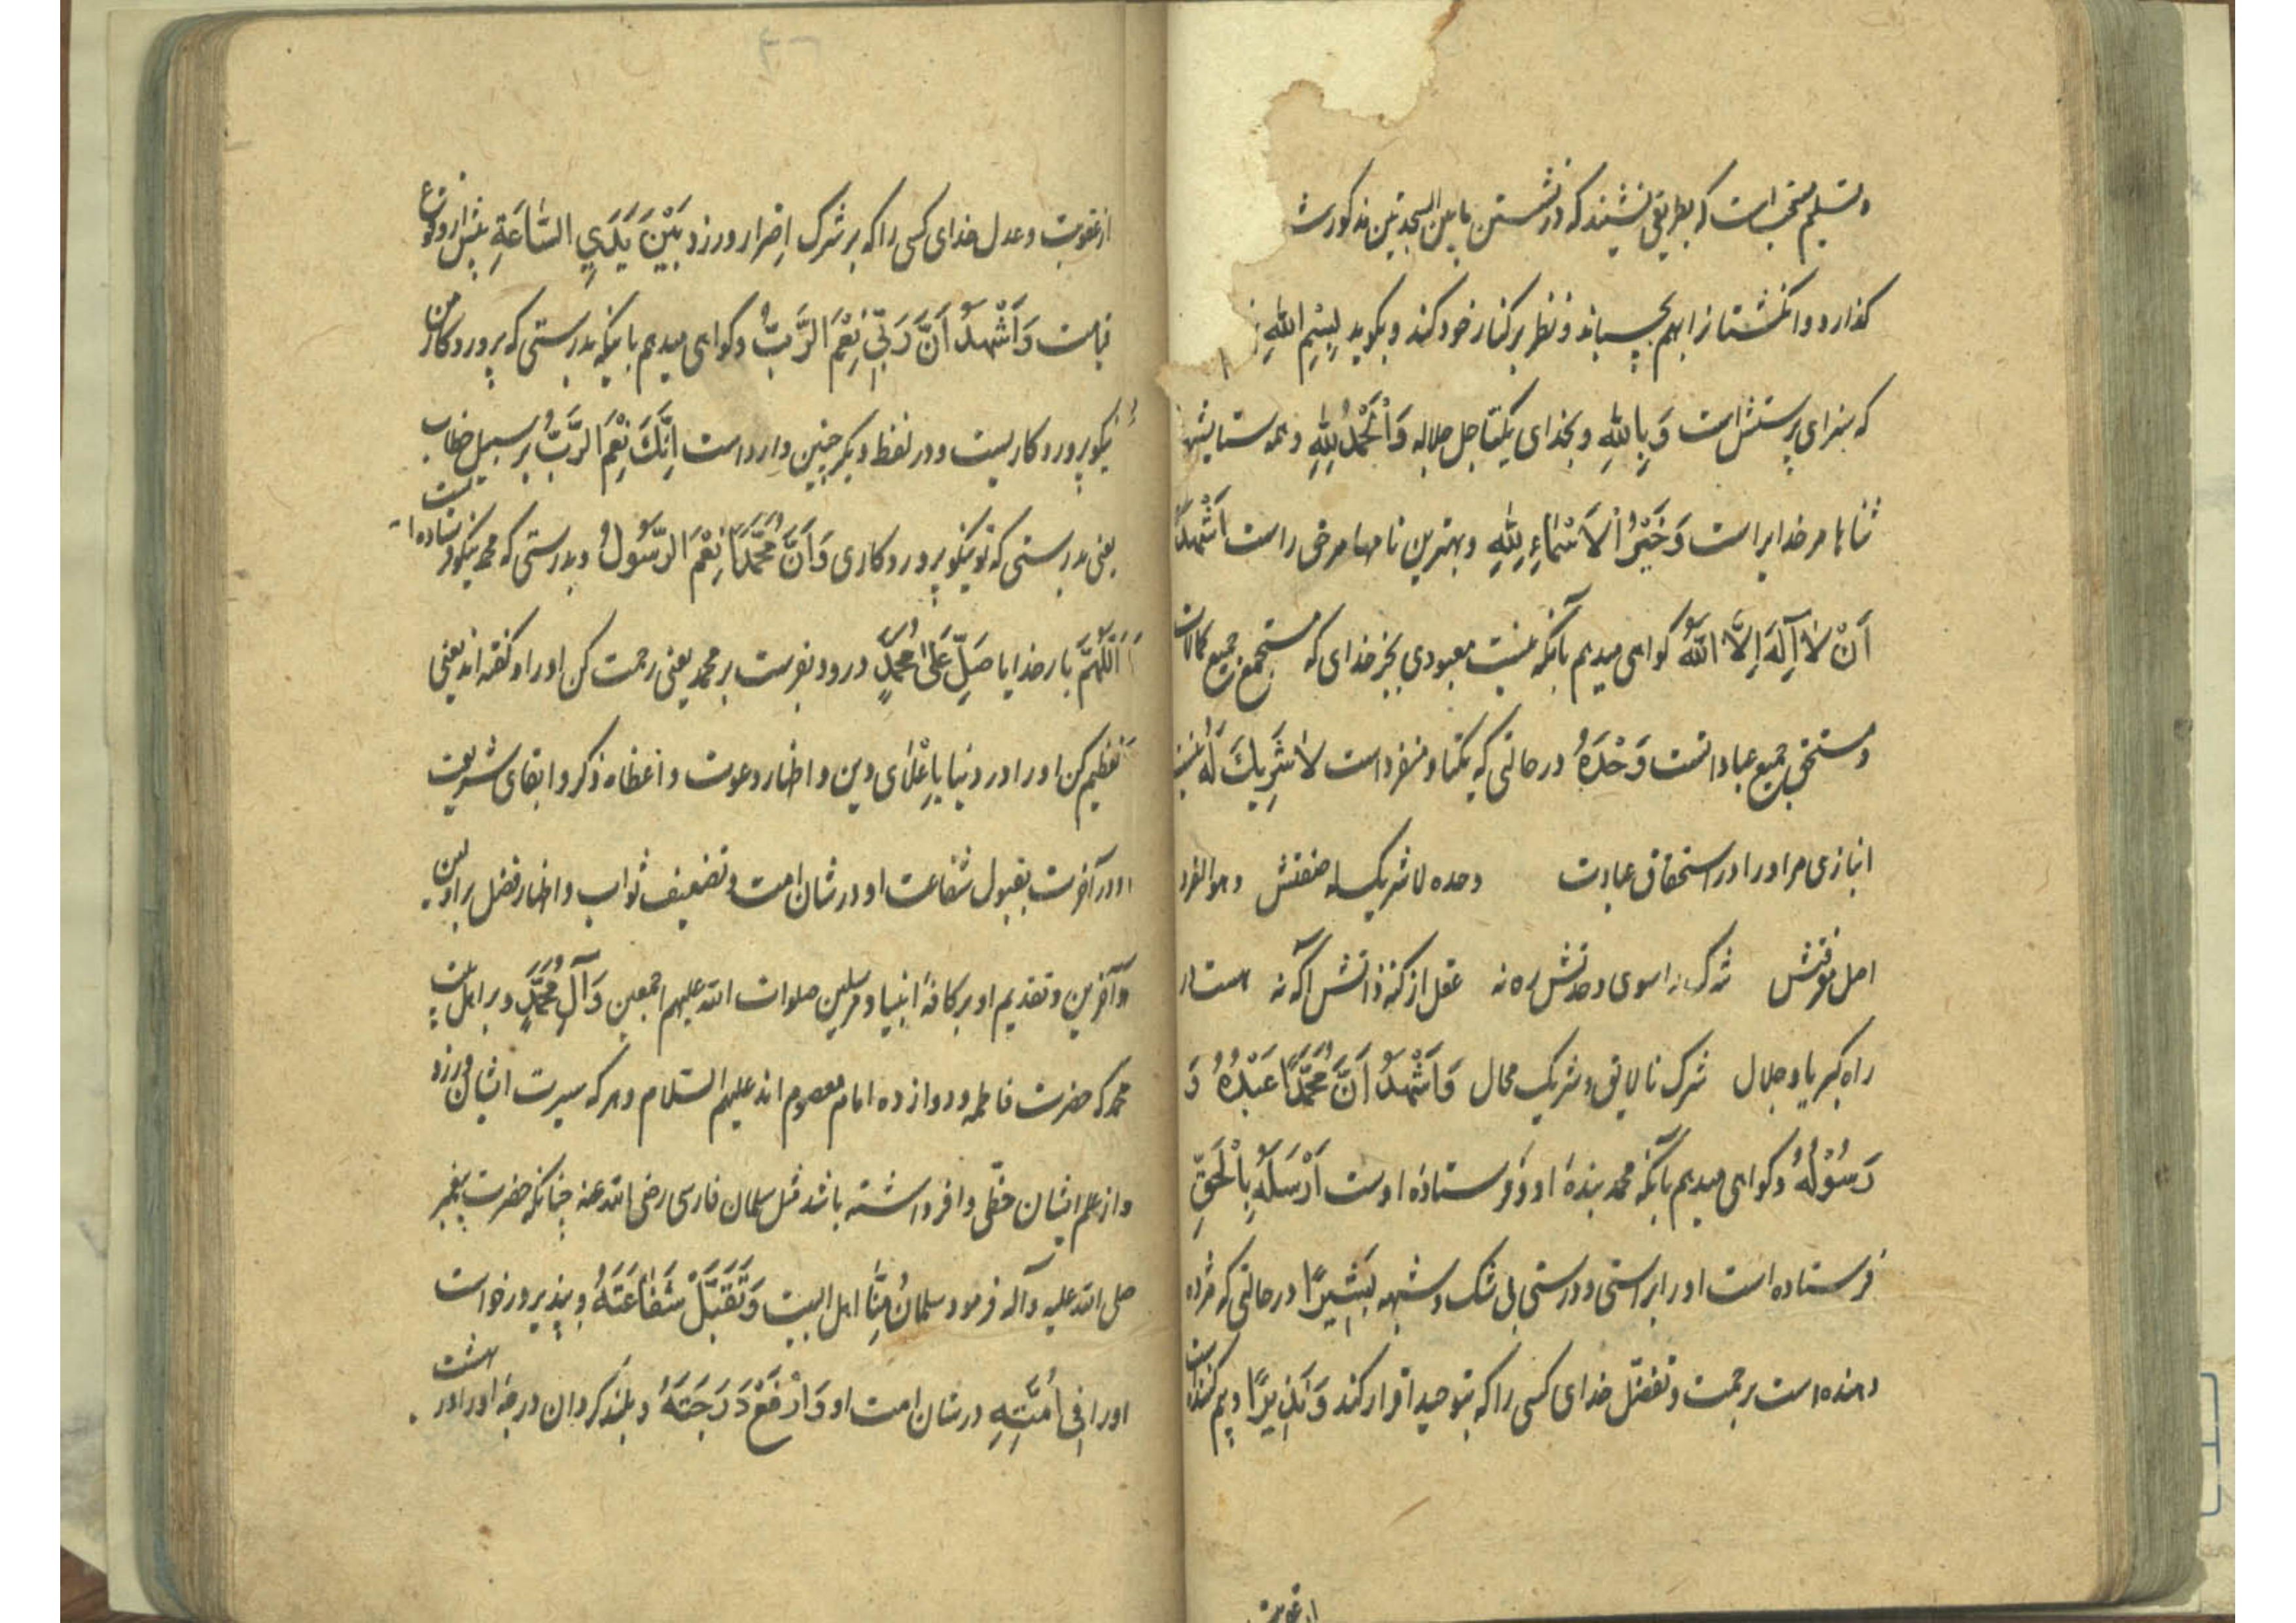 و تسلیم مستحب است که بطریقی نشیند که در نشستن مابین السجدتین مذکور شد
گذارد و انگشتانرا بهم بچسپاند و نظر بر کنار خود کند و بگوید بِسْمِ اللّٰهِ
که سزای پرستش است وَ بِاللّٰهِ و بخدای یکتا جل جلاله وَ الْحَمْدُ لِلّٰهِ و همه ستایشها
ثناها مر خدایراست وَ خَیْرُ الْاَسْمٰاءِ لِلّٰهِ و بهترین نامها مر حق راست اَشْهَدُ
اَنْ لٰا اِلٰهَ اِلَّا اللّٰهُ گواهی میدهم بآنکه نیست معبودی بجز خدای که مستجمع جمیع کمالات
و مستحق جمیع عباداتست وَحْدَهُ در حالتی که یکتا و منفرد است لٰا شَرِیكَ لَهُ نیست
انبازی مر او را در استحقاق عبادت وحده لا شریک له صفتش وهو الفرد
اصل معرفتش شرک را سوی وحدتش ره نه عقل از کنه ذاتش آگه نه هست در
راه کبریا و جلال شرک نالایق و شریک محال وَ اَشْهَدُ اَنَّ مُحَمَّدًا عَبْدُهُ وَ
رَسُوْلُهُ و گواهی میدهم بآنکه محمد بندهٔ او و فرستادهٔ اوست اَرْسَلَهُ بِالْحَقِّ
فرستاده است او را براستی و درستی بی شک و شبهه بَشِیرًا در حالتی که مژده
دهنده است برحمت و تفضّل خدای کسی را که بتوحید اقرار کند وَ نَذِیرًا و بیم کننده است
از عقوبت
از عقوبت و عدل خدای کسی را که بر شرک اِصرار ورزد بَیْنَ یَدَیِ السّٰاعَةِ پیش از وقوع
قیامت وَ اَشْهَدُ اَنَّ رَبِّی نِعْمَ الرَّبُّ و گواهی میدهم باینکه بدرستی که پروردگار من
نیکو پروردگاریست و در لفظ دیگر چنین وارد است اِنَّكَ نِعْمَ الرَّبُّ بر سبیل خطاب
یعنی بدرستی که تو نیکو پروردگاری وَ اَنَّ مُحَمَّدًا نِعْمَ الرَّسُولُ و بدرستی که محمد نیکو فرستاده ایست
اَللّٰهُمَّ بار خدایا صَلِّ عَلٰی مُحَمَّدٍ درود بفرست بر محمد یعنی رحمت کن او را و گفته اند یعنی
تعظیم کن او را در دنیا باِعْلٰای دین و اظهار دعوت و اعظام ذکر و ابقای شریعت
و در آخرت بقبول شفاعت او در شان امت و تضعیف ثواب و اظهار فضل بر اولین
و آخرین و تقدیم او بر کافهٔ انبیا و مرسلین صلوات الله علیهم اجمعین وَ آلِ مُحَمَّدٍ و بر اهل بیت
محمد که حضرت فاطمه و دوازده امام معصوم اند علیهم السّلام و هر که سیرت ایشان ورزد
و از علم ایشان حظّی وافر داشته باشد مثل سلمان فارسی رضی الله عنه چنانکه حضرت پیغمبر
صلی الله علیه و آله فرمود سلمانُ مِنّٰا اهل البیت وَ تَقَبَّلْ شَفٰاعَتَهُ و بپذیر درخواست
او را فِی اُمَّتِهِ در شان امت او وَ ارْفَعْ دَرَجَتَهُ و بلند گردان درجهٔ او را در بهشت